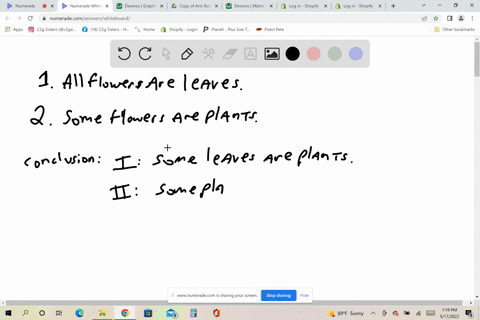 Numerade
Numerade Whit
Desmos | Graph
Copy of Ami Rav
Desmos | Matri
Log in - Shopify
Log in - Shopify
numerade.com/answers/whiteboard/
Apps
C2g Sisters
(18) C2g Sisters - H
YouTube
Maps
Shopify - Login
Placeit - Plus Size T
Pokel Rate
Other bookmarks
1. All flowers Are leaves.
2. Some flowers Are plants.
Conclusion: I: Some leaves are plants.
II: Some pla
www.numerade.com is sharing your screen.
Stop sharing
Hide
89°F Sunny
1:19 PM
5/17/2022